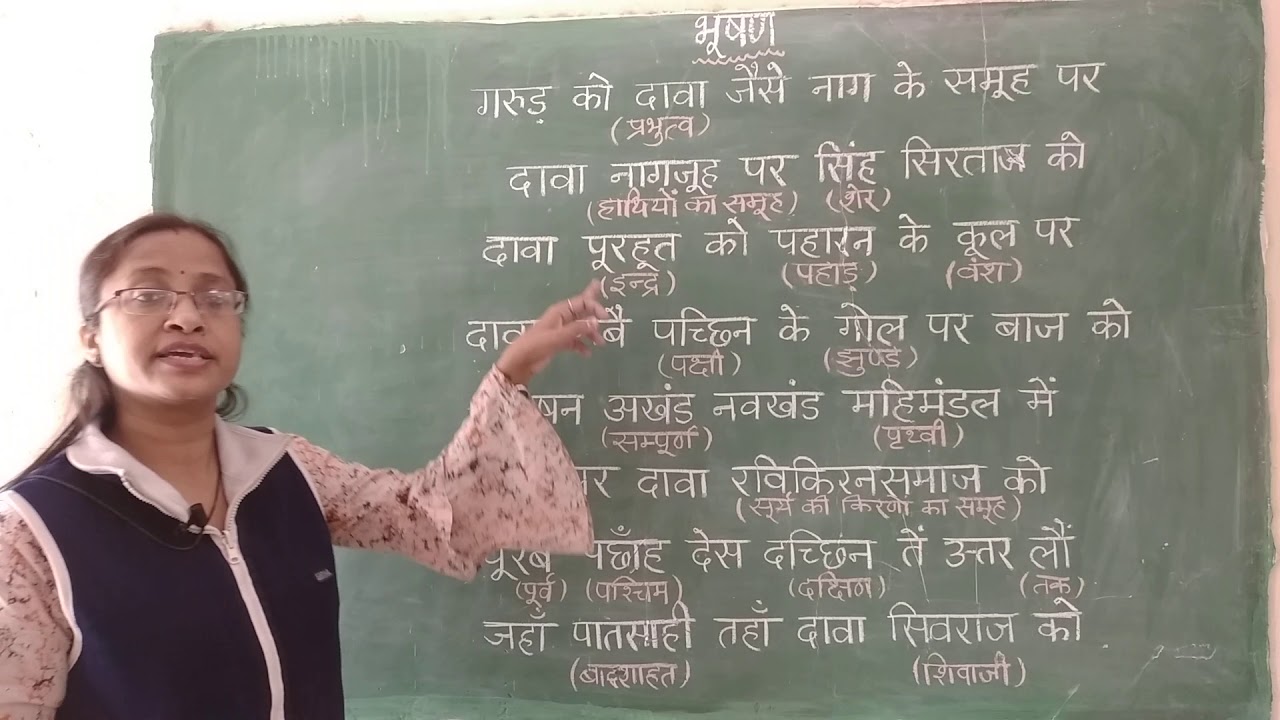 भूषण
गरुड़ को दावा जैसे नाग के समूह पर
(प्रभुत्व)
दावा नागजूह पर सिंह सिरताज को
(हाथियों का समूह) (शेर)
दावा पूरहूत को पहारन के कूल पर
(इन्द्र) (पहाड़) (वंश)
दावा पच्छिन के गोल पर बाज को
(पक्षी) (झुण्ड)
अखंड नवखंड महिमंडल में
(सम्पूर्ण) (पृथ्वी)
दावा रविकिरनसमाज को
(सूर्य की किरणों का समूह)
पूरब पछाँह देस दच्छिन तें उत्तर लौं
(पूर्व) (पश्चिम) (दक्षिण) (तक)
जहाँ पातसाही तहाँ दावा सिवराज को
(बादशाहत) (शिवाजी)